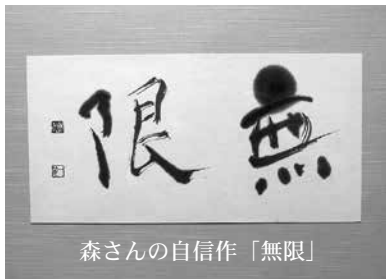 無限
森さんの自信作「無限」